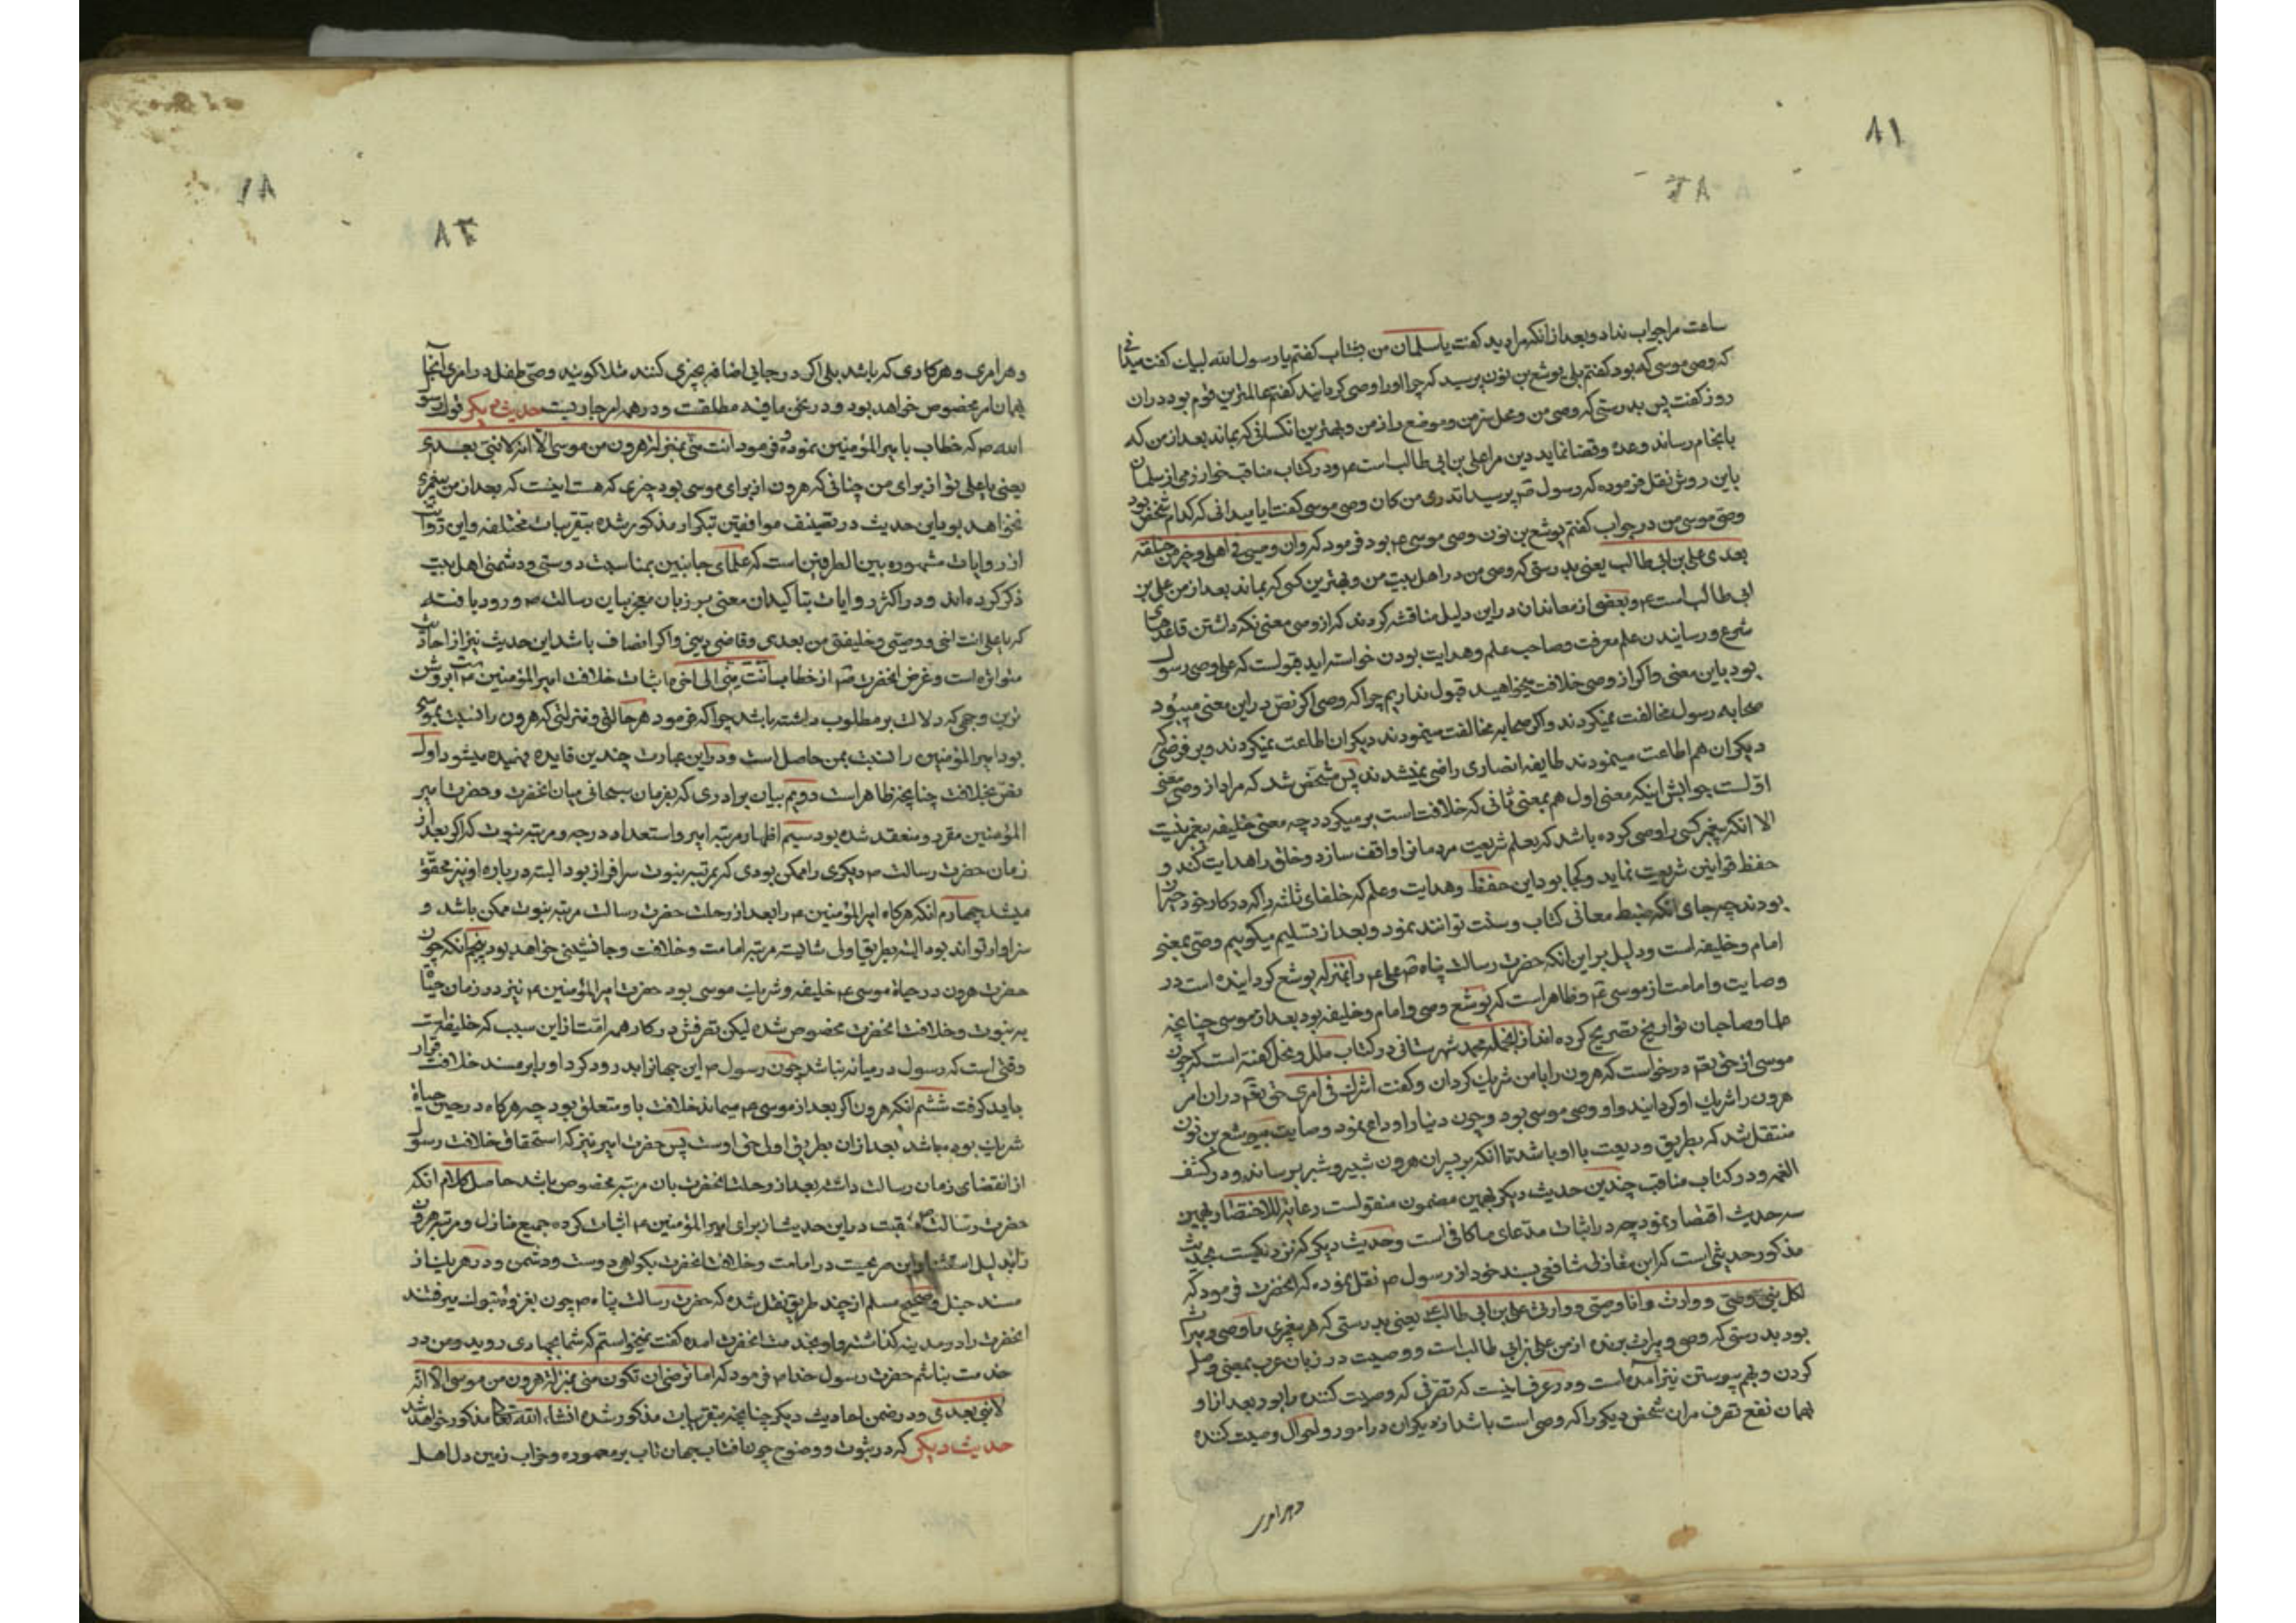 ٨١
٨٢
ساعت مرا جواب نداد و بعد از انکه مرا دید کفت یا سلمان من بشتاب کفتم یا رسول الله لبیک کفت میدانی
که وصی موسی که بود کفتم بلی یوشع بن نون پرسید که چرا او را وصی کردانید کفتم عالمترین قوم بود دران
روز کفت پس بدرستی که وصی من و محل سر من و موضع راز من و بهترین انکسانی که بماند بعد از من که
بانجام رساند وعده و قضا نماید دین مرا علی بن ابی طالب است ع و در کتاب مناقب خوارزمی از سلمان
باین روش نقل فرموده که رسول ص پرسید اتدری من کان وصی موسی کفت ایا میدانی که کدام شخص بود
وصی موسی من در جواب کفتم یوشع بن نون وصی موسی ع بود فرمود که وان وصیی فی اهلی و خیر من اخلفه
بعدی علی بن ابی طالب یعنی بدرستی که وصی من در اهل بیت من و بهترین کسی که بماند بعد از من علی بن
ابی طالب است ع و بعضی از معاندان در این دلیل مناقشه کردند که از وصی معنی نکه داشتن قاعدهای
شرع و رسانیدن علم معرفت و صاحب علم و هدایت بودن خواسته اید قبولست که علی وصی رسول
بود باین معنی و اکر از وصی خلافت میخواهید قبول نداریم چرا که وصی اکر نص در این معنی میبود
صحابه رسول مخالفت نمیکردند و اکر صحابه مخالفت مینمودند دیکران اطاعت نمیکردند و بر فرضی که
دیکران هم اطاعت مینمودند طایفه انصاری راضی نمیشدند پس مشخص شد که مراد از وصی معنی
اولست جوابش اینکه معنی اول هم بمعنی ثانی که خلافت است بر میکردد چه معنی خلیفه پیغمبر نیست
الا انکه پیغمبر کسی را وصی کرده باشد که بعلم شریعت مردمانرا واقف سازد و خلق را هدایت کند و
حفظ قوانین شریعت نماید و کجا بود این حفظ و هدایت و علم که خلفای ثلثه را که در کار خود حیران
بودند چه جای انکه ضبط معانی کتاب و سنت توانند نمود و بعد از تسلیم میکوییم وصی بمعنی
امام و خلیفه است و دلیل بر این انکه حضرت رسالت پناه ص علی ع را بمنزله یوشع کردانیده است در
وصایت و امامت از موسی ع و ظاهر است که یوشع وصی و امام و خلیفه بود بعد از موسی چنانچه
علما و صاحبان تواریخ تصریح کرده اند از انجمله محمد شهرستانی در کتاب ملل و نحل کفته است که چون
موسی از حق تع درخواست که هرون را با من شریک کردان و کفت اشرکه فی امری حق تع دران امر
هرون را شریک او کردانید و او وصی موسی بود و چون دنیا را وداع نمود وصایت بیوشع بن نون
منتقل شد که بطریق ودیعت با او باشد تا انکه بپسران هرون شبیر و شبر برساند و در کشف
الغمه و در کتاب مناقب چندین حدیث دیکر بهمین مضمون منقولست رعایة للاختصار بهمین
سه حدیث اقتصار نمود چه در اثبات مدعای ما کافی است و حدیث دیکر که نزدیکست بحدیث
مذکور حدیثی است که ابن مغازلی شافعی بسند خود از رسول ص نقل نموده که انحضرت فرمود که
لکل نبی وصی و وارث و انا وصیی و وارثی علی بن ابی طالب یعنی بدرستی که هر پیغمبری را وصی و میراث
بود بدرستی که وصی و میراث برنده از من علی بن ابی طالب است و وصیت در زبان عرب بمعنی وصل
کردن و بهم پیوستن نیز آمده است و در عرف اینست که تصرفی که وصیت کننده را بود بعد از او
بهمان نفع تصرف مر ان شخص دیکر را که وصی است باشد از دیکران در امور و احوال وصیت کننده
و هر امری
٨١
٨٢
و هر امری و هر کاری که باشد بلی اکر در جایی اضافه بچیزی کنند مثلا کویند وصی طفل در امری آنجا
بهمان امر مخصوص خواهد بود و در نحن ما فیه مطلقست و در همه امر جاریست حدیث دیکر قول رسول
الله ص که خطاب با امیر المؤمنین نموده فرمود انت منی بمنزلة هرون من موسی الا انه لا نبی بعدی
یعنی یا علی تو از برای من چنانی که هرون از برای موسی بود چیزی که هست اینست که بعد از من پیغمبری
نخواهد بود این حدیث در تصنیف موافقین تکرار مذکور شده بتقریبات مختلفه و این روایت
از روایات مشهوره بین الطرفین است که علمای جانبین بمناسبت دوستی و دشمنی اهل بیت
ذکر کرده اند و در اکثر روایات بتاکید ان معنی بر زبان معجز بیان رسالت ص ورود یافته
که یا علی انت اخی و وصیی و خلیفتی من بعدی و قاضی دینی و اکر انصاف باشد این حدیث نیز از احادیث
متواتره است و غرض انحضرت ص از خطاب انت منی الی اخره اثبات خلافت امیر المؤمنین است بر روشن
ترین وجهی که دلالت بر مطلوب داشته باشد چرا که فرمود هر حالتی و منزلتی که هرون را نسبت بموسی
بود امیر المؤمنین را نسبت بمن حاصل است و در این عبارت چندین فایده فهمیده میشود اول
نص بخلافت چنانچه ظاهر است دویم بیان برادری که بفرمان سبحانی میان انحضرت و حضرت امیر
المؤمنین مقرر و منعقد شده بود سیم اظهار مرتبه امیر و استعداد درجه و مرتبه نبوت که اکر بعد از
زمان حضرت رسالت ص دیکری را ممکن بودی که بمرتبه نبوت سرافراز بود البته در باره او نیز محقق
میشد چهارم انکه هرکاه امیر المؤمنین ع را بعد از رحلت حضرت رسالت مرتبه نبوت ممکن باشد و
سزاوار تواند بود البته بطریق اولی شایسته مرتبه امامت و خلافت و جانشینی خواهد بود پنجم انکه چون
حضرت هرون در حیاة موسی ع خلیفه و شریک موسی بود حضرت امیر المؤمنین ع نیز در زمان حیاة
به نبوت و خلافت انحضرت مخصوص شده لیکن تصرفش در کار همه امتست از این سبب که خلیفه
وقتی است که رسول در میانه نباشد چون رسول ص این جهانرا بدرود کرد او را بر مسند خلافت قرار
باید کرفت ششم انکه هرون اکر بعد از موسی ع میماند خلافت باو متعلق بود چه هرکاه در حین حیاة
شریک بوده باشد بعد از ان بطریق اولی حق اوست پس حضرت امیر نیز که استحقاق خلافت رسول
از انقضای زمان رسالت داشته بعد از رحلت انحضرت بان مرتبه مخصوص باشد حاصل کلام انکه
حضرت رسالت منقبت در این حدیث از برای امیر المؤمنین ع اثبات کرده جمیع منازل و مرتبه هرون
را بدلیل استثنا و این صریحست در امامت و خلافت انحضرت بکواهی دوست و دشمن و در هر یک از
مسند حنبل و صحیح مسلم از چند طریق نقل شده که حضرت رسالت پناه ص چون بغزوه تبوک میرفتند
انحضرت را در مدینه کذاشته و او بخدمت انحضرت امده کفت نمیخواستم که شما بجهادی روید و من در
خدمت نباشم حضرت رسول خدا ص فرمود که اما ترضی ان تکون منی بمنزلة هرون من موسی الا انه
لا نبی بعدی و در ضمن احادیث دیکر چنانچه بتقریبات مذکور شده انشاء الله تعالی مذکور خواهد شد
حدیث دیکر که در ثبوت و وضوح چون افتاب جهان تاب بر معموره و خراب زمین دل اهل